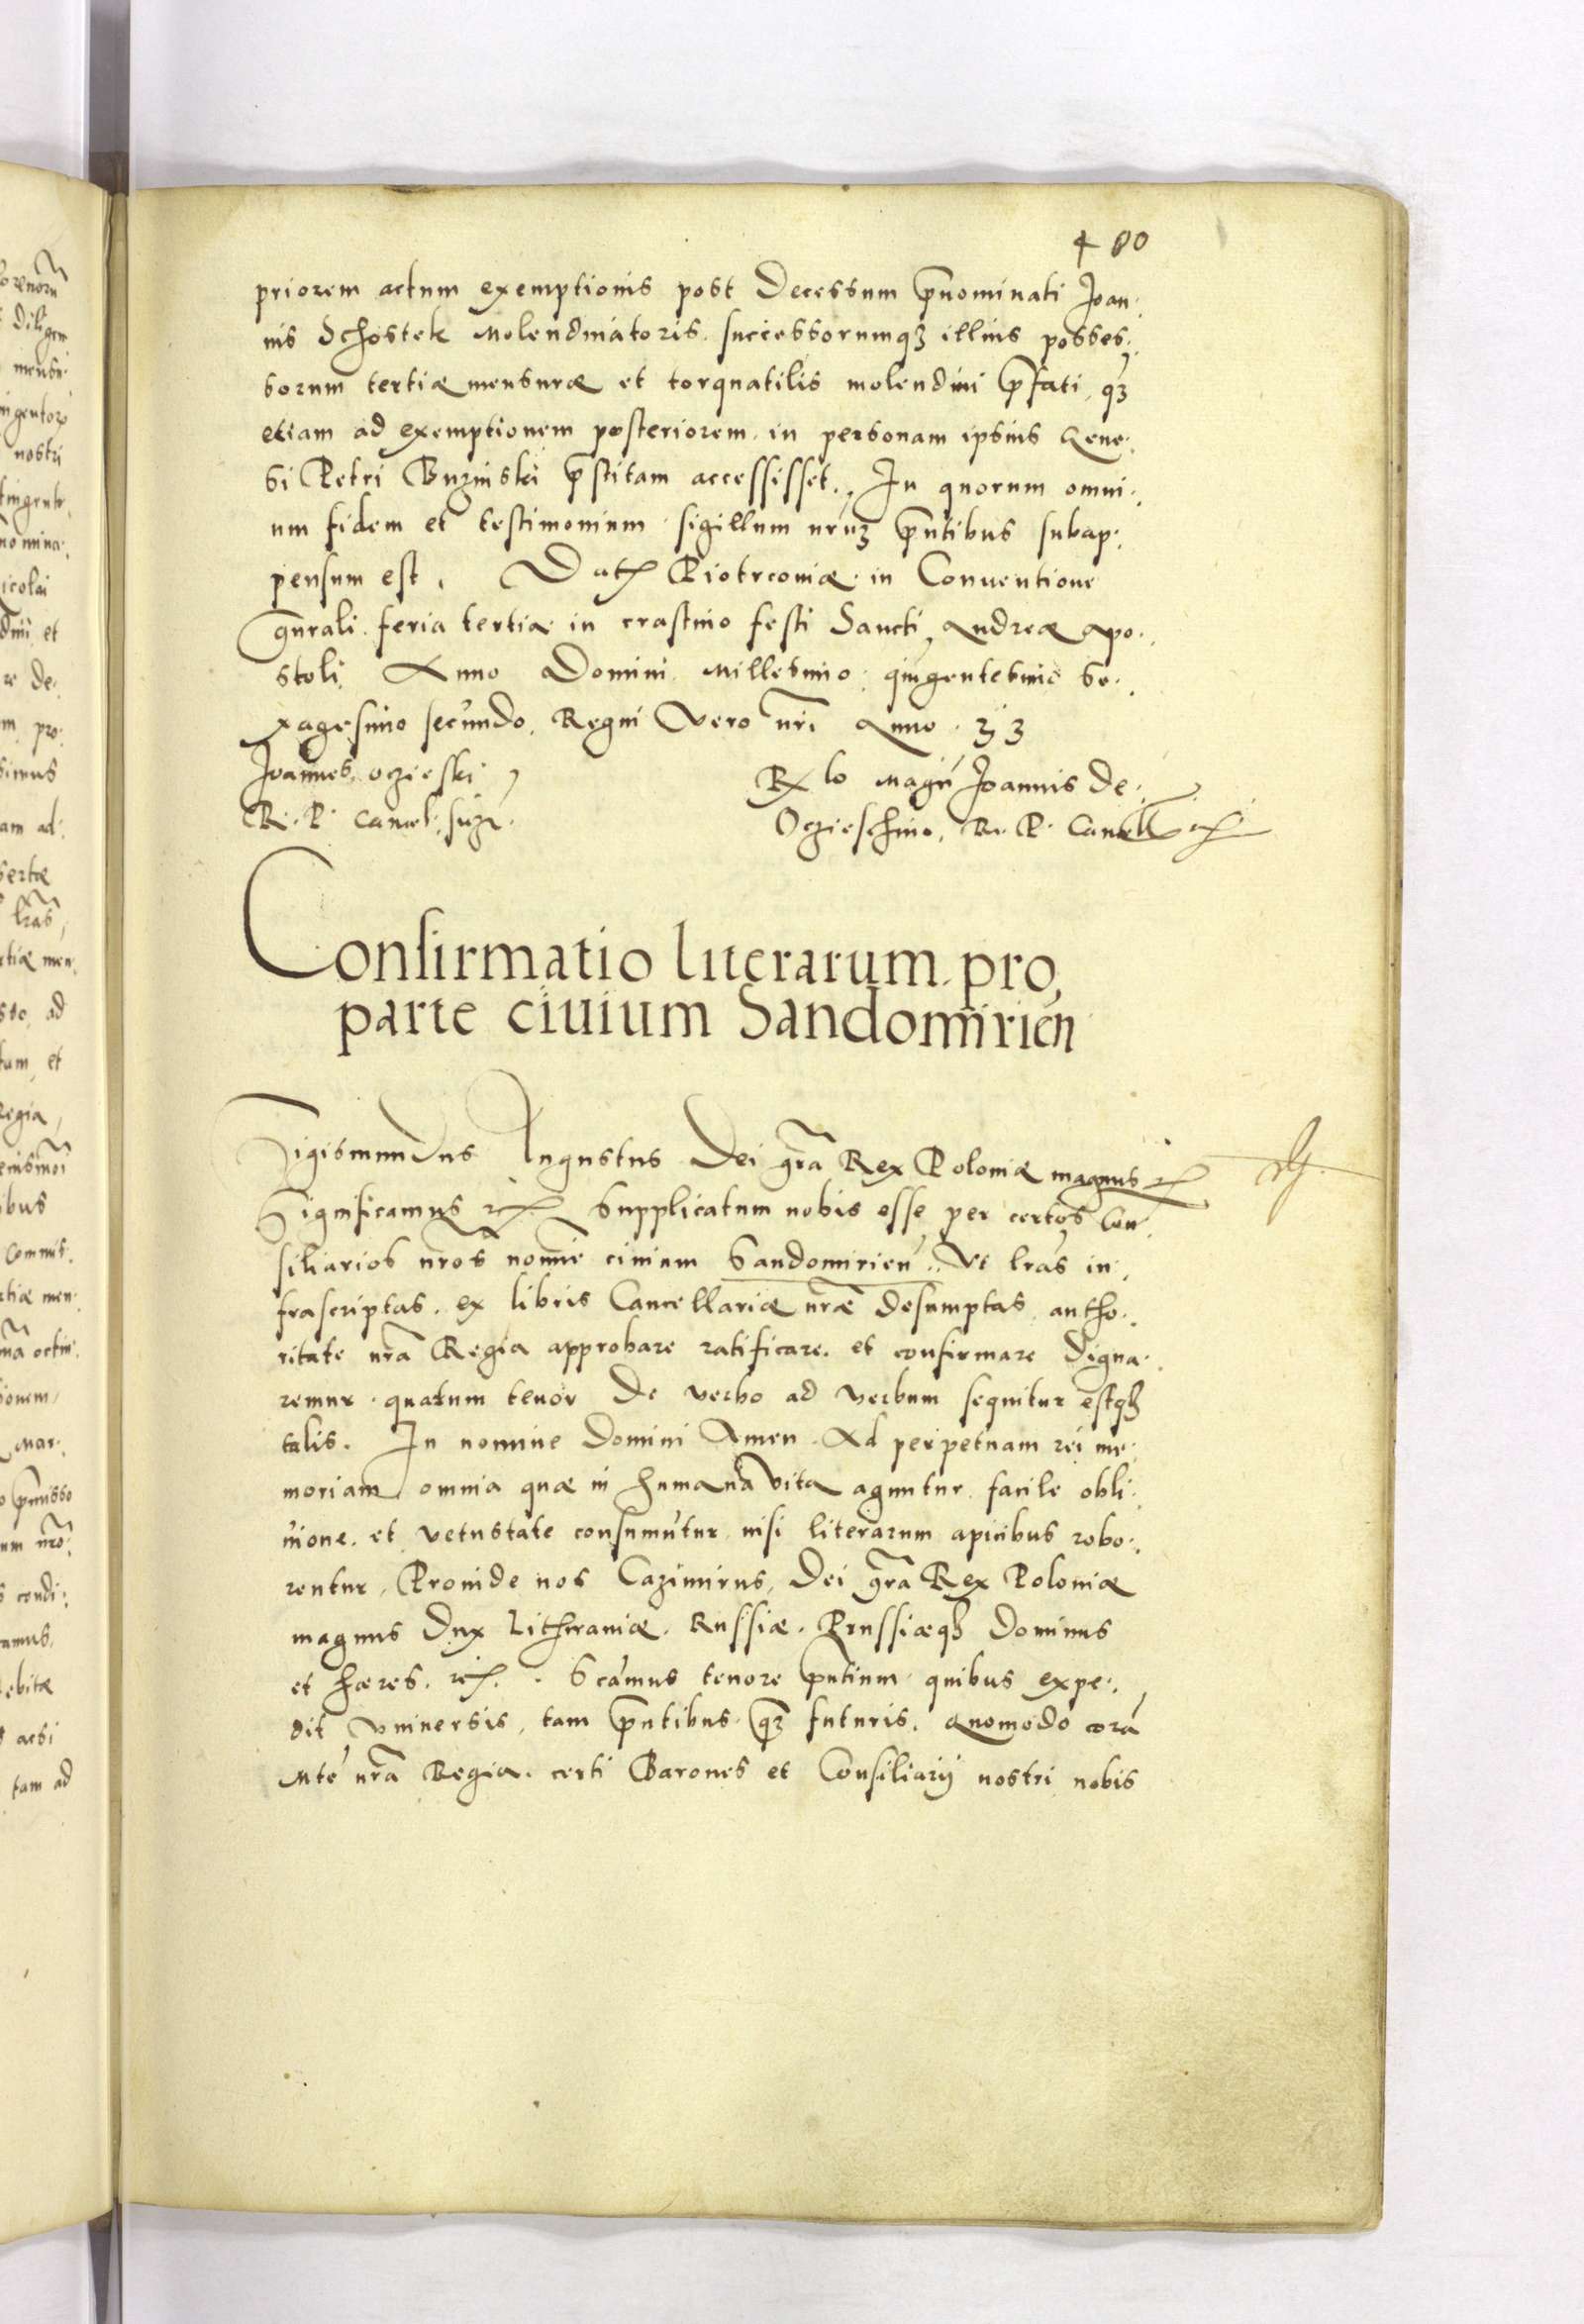 480
priorem actum exemptionis post Decessum p̄nominati Joan:
nis Schostek Molendinatoris. successorumqȝ illius posses:
sorum tertiæ mensuræ et torquatilis molendini p̄fati, qȝ
etiam ad exemptionem posteriorem. in personam ipsius Gene:
si Petri Buzinski p̄stitam accessisset., In quorum omni:
um fidem et testimonium sigillum nr̄uȝ p̄ntibus subap:
pensum est, Datꝭ Piotrconiæ in Conuentione
gn̄rali. feria tertia in crastino festi Sancti Andreæ Apo:
stoli. Anno Domini Millesimo quingentesimo se:
xagesimo secundo. Regni Vero nr̄i Anno. 33
Joannes. oczieski
R. P. Cancel:
Rlo Magn̄ Joannis de:
Oczieschino. R. P. Cancell
Confirmatio literarum. pro
parte ciuium Sandomirień
Sigismundus Augustus Dei gr̄a Rex Poloniæ magnus
Significamus Supplicatum nobis esse per certos Con:
siliarios nr̄os nomīe ciuium Sandomirień. Vt lr̄as in:
frascriptas. ex libris Cancellariæ nr̄æ desumptas. autho:
ritate nr̄a Regia approbare ratificare. et confirmare digna:
remur. quarum tenor de verbo ad verbum sequitur estqȝ
talis. In nomine Domini Amen. Ad perpetuam rei me:
moriam omnia quæ in humana vita aguntur facile obli:
uione. et vetustate consumūtur nisi literarum apicibus robo:
rentur. Prouide nos Cazimirus, Dei gr̄a Rex Poloniæ
magnus Dux Lithuaniæ. Russiæ. Prussiæqȝ Dominus
et hæres. . tenore p̄ntium quibus expe:
dit vniuersis, tam p̄ntibus. qȝ futuris. Quomodo corā
Mte nr̄a Regia. certi Barones et Consiliarij nostri nobis